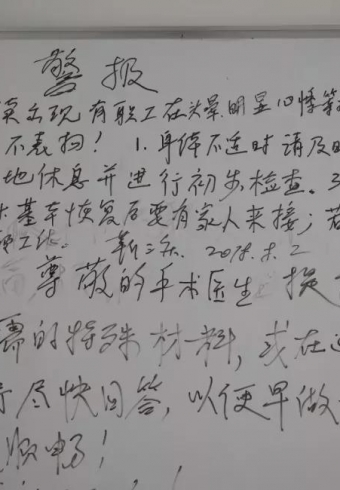 警报
出现有职工在头晕
不表扬！ 1.身体不适时请及时
地休息并进行初步检查。3
基本恢复后要有家人来接；若
工作。 2018.8.2
尊敬的手术医生 提
需的特殊材料，或在
尽快回答，以便早做
顺畅！